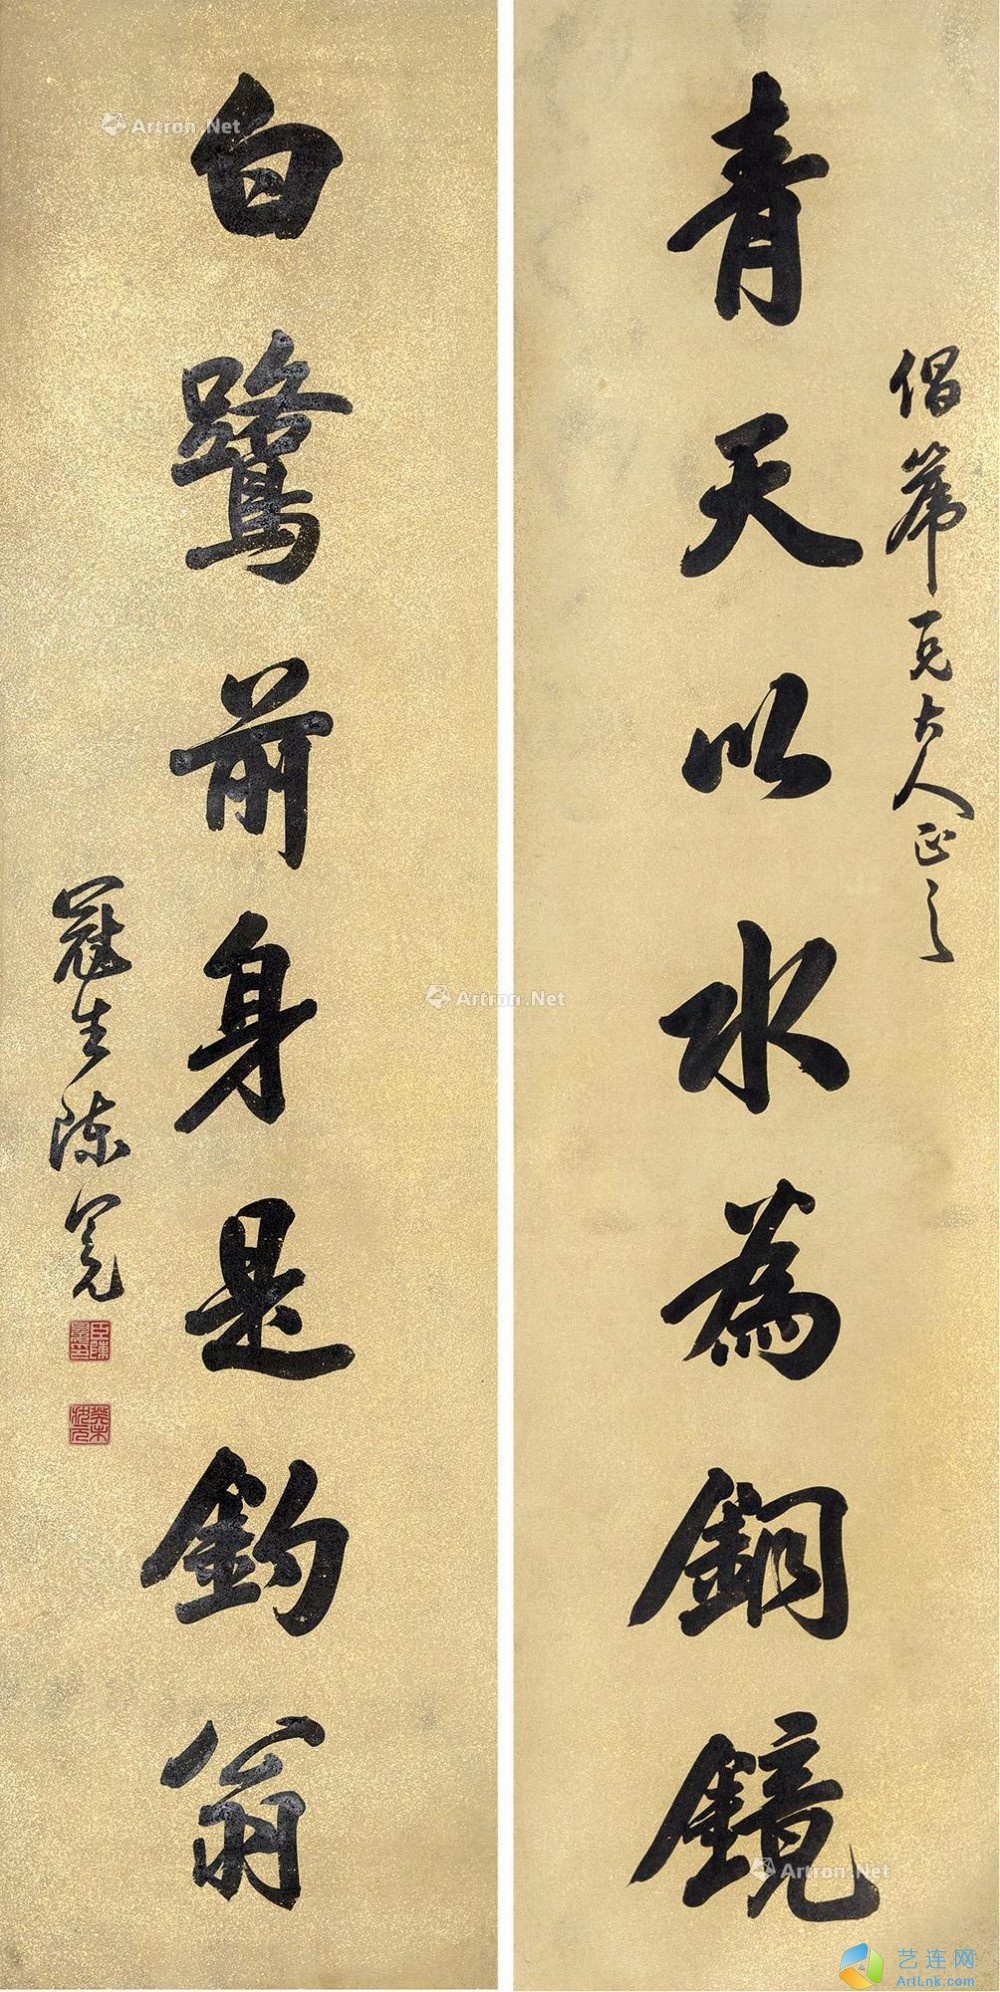 青天以水為銅鏡
偈篿三兄大人正之
白鷺前身是釣翁
冠生陳冕
臣陳冕印
癸未狀元
Artron.Net
Artron.Net
Artron.Net
艺连网
ArtLnk.com